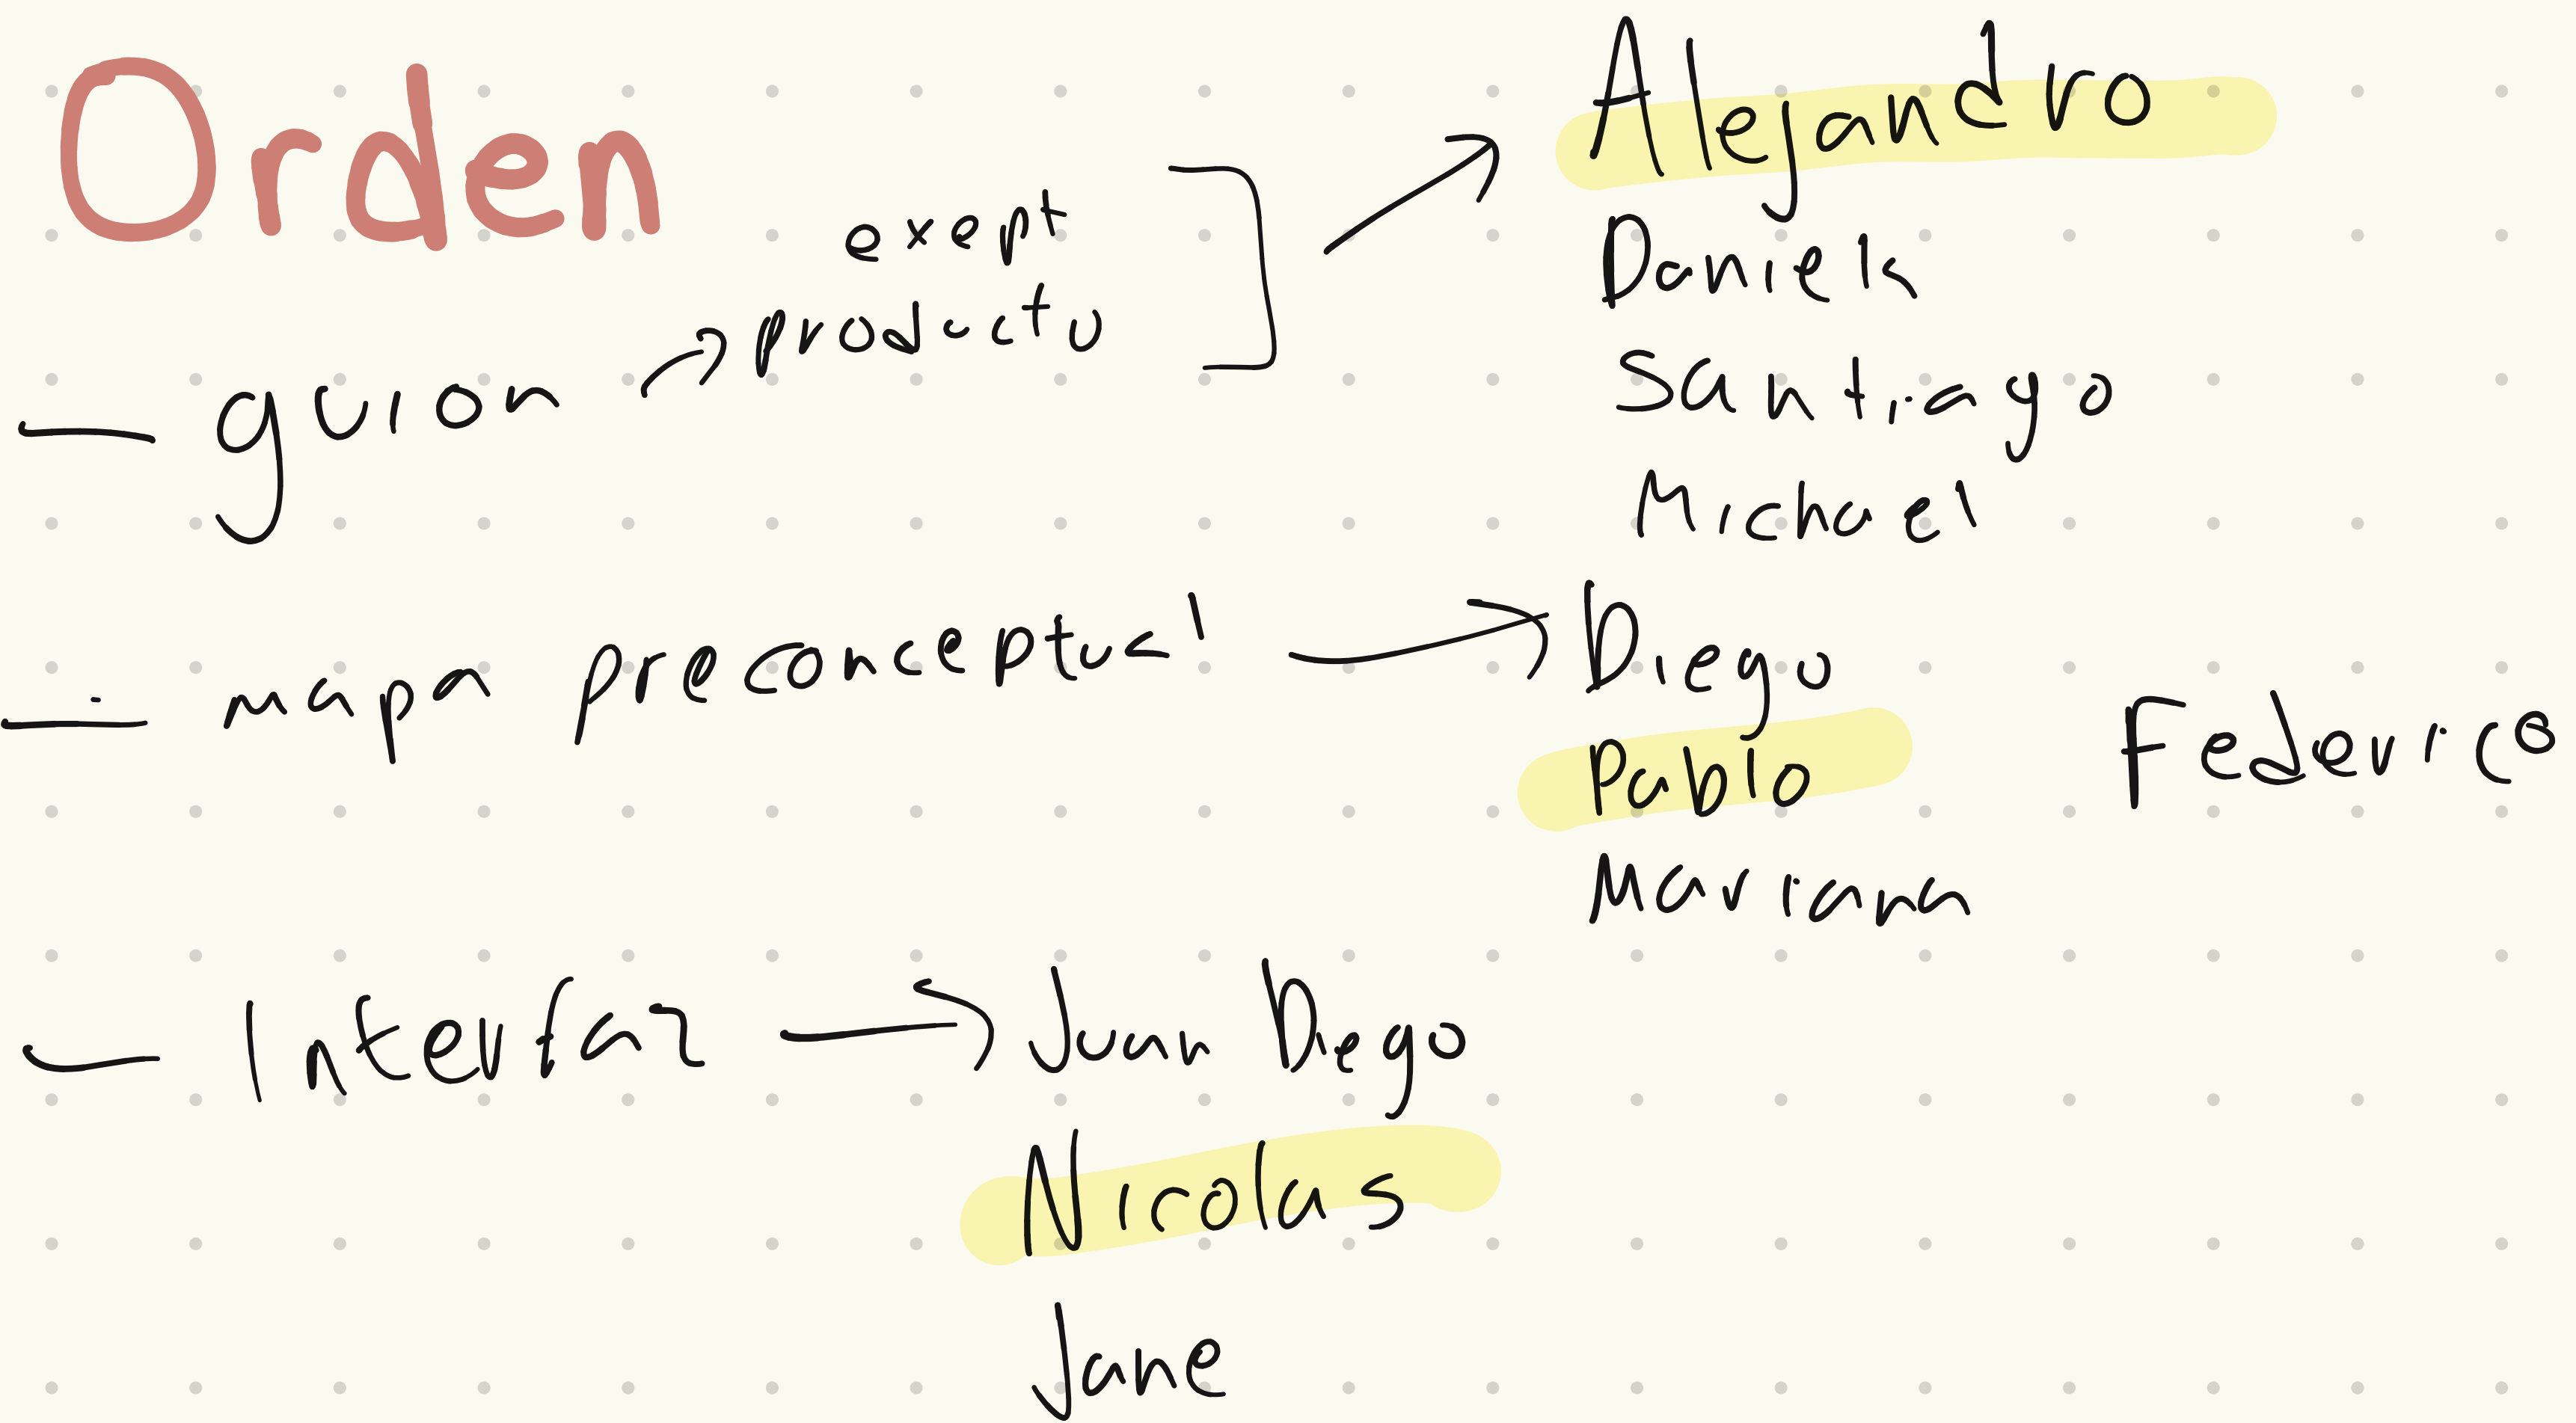 Orden
exept
guion → producto
→ Alejandro
Daniela
Santiago
Michael
— mapa preconceptual → Diego
Pablo
Federico
Mariana
— Interfaz → Juan Diego
Nicolas
Jane